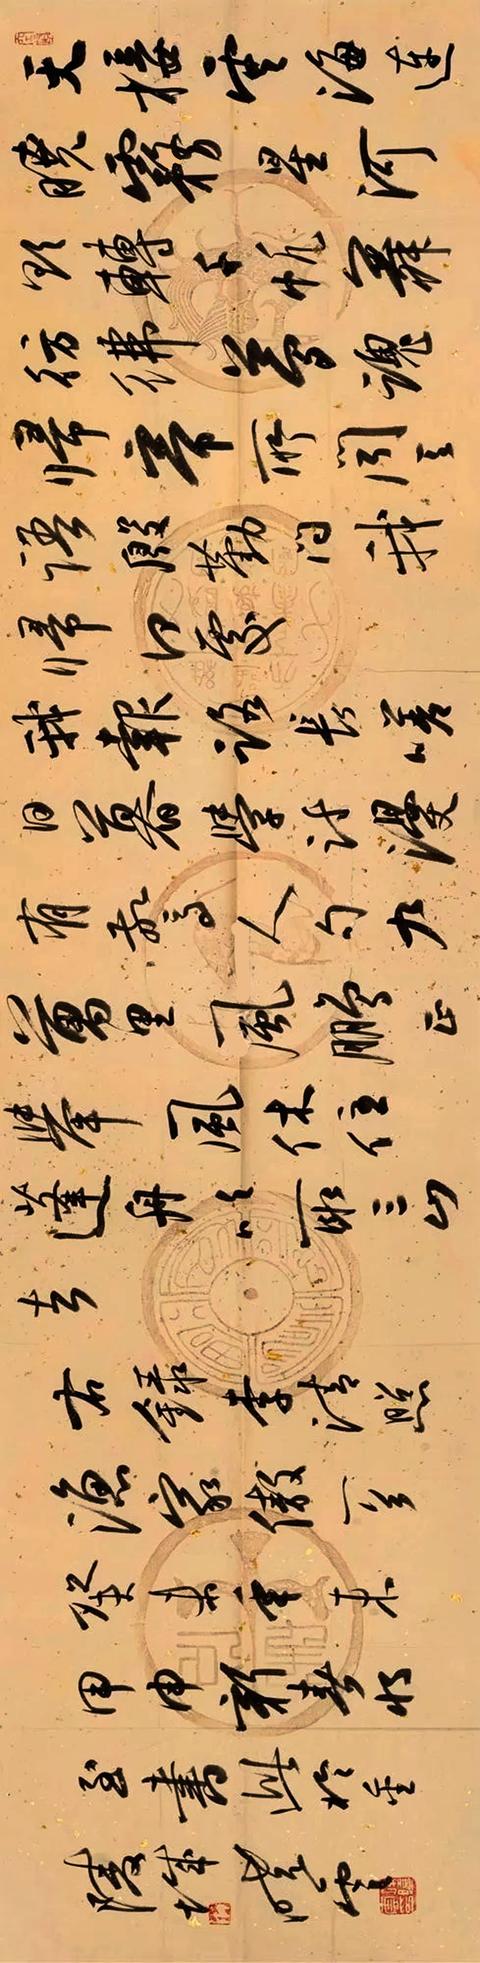 天接雲濤連
曉霧星河
欲轉千帆舞
彷彿夢魂
歸帝所聞天
語殷勤問我
歸何處
我報路長嗟
日暮學詩漫
有驚人句九
萬里風鵬正
舉風休住
蓬舟吹取三山
去
右錄李清照
漁家傲一首
癸未年末
甲申新春將
至書此於金
陵